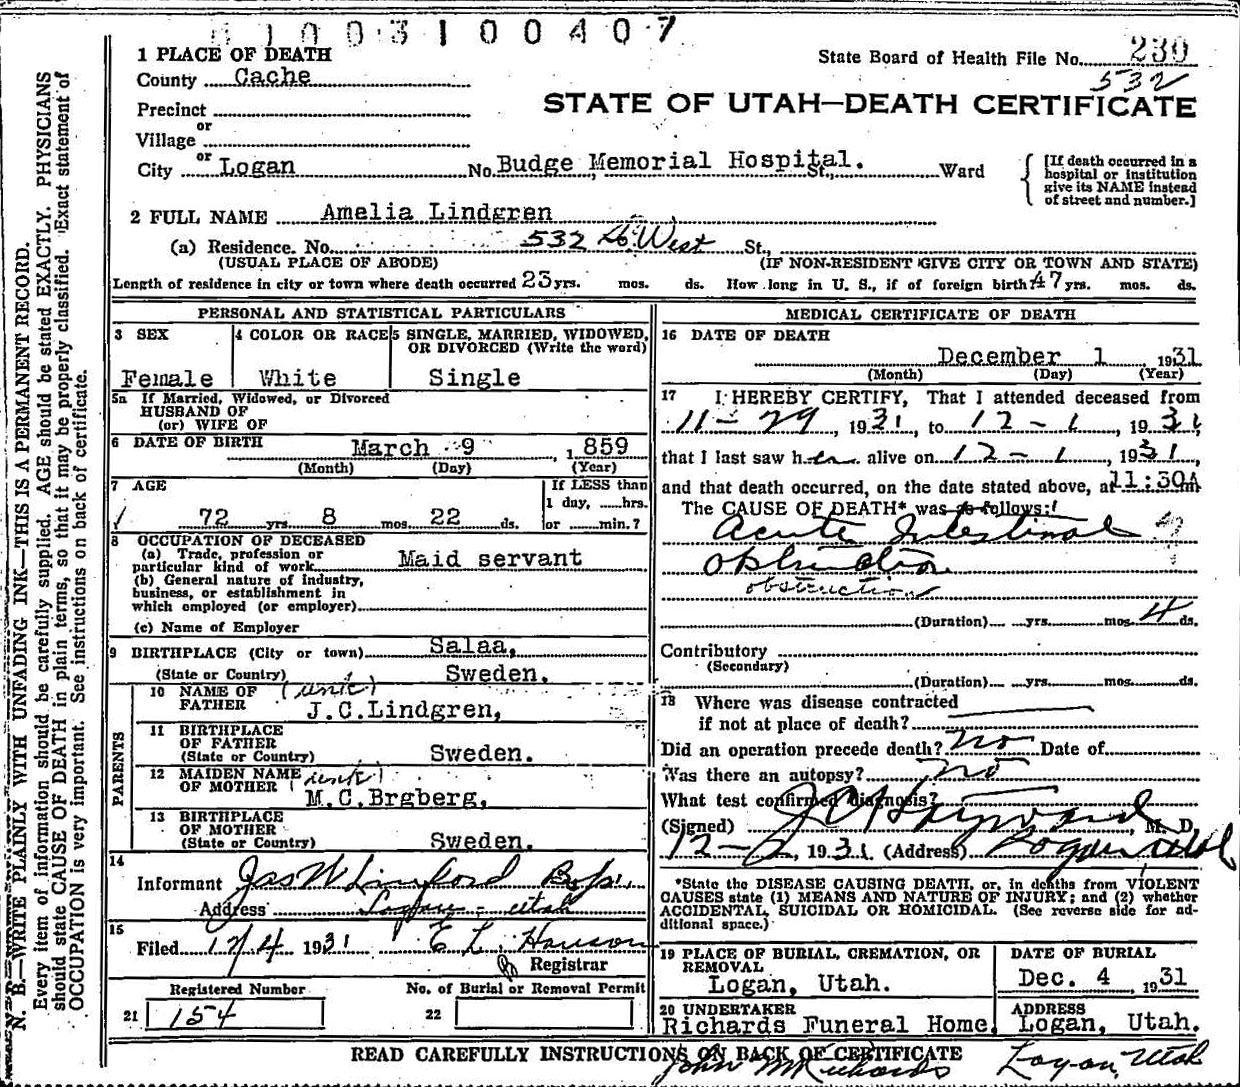 1003100407
1 PLACE OF DEATH
State Board of Health File No. 230
County Cache
532
STATE OF UTAH—DEATH CERTIFICATE
Precinct
or
Village
or
City Logan No. Budge Memorial Hospital. St., Ward
[If death occurred in a
hospital or institution
give its NAME instead
of street and number.]
2 FULL NAME Amelia Lindgren
(a) Residence. No. 532 So. West St.,
(USUAL PLACE OF ABODE) (IF NON-RESIDENT GIVE CITY OR TOWN AND STATE)
Length of residence in city or town where death occurred 23 yrs. mos. ds. How long in U. S., if of foreign birth 47 yrs. mos. ds.
PERSONAL AND STATISTICAL PARTICULARS
3 SEX
Female
4 COLOR OR RACE
White
5 SINGLE, MARRIED, WIDOWED,
OR DIVORCED (Write the word)
Single
5a If Married, Widowed, or Divorced
HUSBAND OF
(or) WIFE OF
6 DATE OF BIRTH March 9, 1859
(Month) (Day) (Year)
7 AGE
If LESS than
1 day, hrs.
or min.?
72 yrs. 8 mos. 22 ds.
8 OCCUPATION OF DECEASED
(a) Trade, profession or
particular kind of work Maid servant
(b) General nature of industry,
business, or establishment in
which employed (or employer)
(c) Name of Employer
9 BIRTHPLACE (City or town) Salaa,
(State or Country) Sweden.
PARENTS
10 NAME OF (unk)
FATHER J.C.Lindgren,
11 BIRTHPLACE
OF FATHER
(State or Country) Sweden.
12 MAIDEN NAME (unk)
OF MOTHER M.C.Brgberg,
13 BIRTHPLACE
OF MOTHER
(State or Country) Sweden.
14
Informant Jas W Linford
Address Logan - Utah
15
Filed 12/4 1931 E L. Hanson
Registrar
Registered Number No. of Burial or Removal Permit
21 154 22
MEDICAL CERTIFICATE OF DEATH
16 DATE OF DEATH
December 1 1931
(Month) (Day) (Year)
17 I HEREBY CERTIFY, That I attended deceased from
11-29, 1931, to 12-1, 1931,
that I last saw her alive on 12-1, 1931,
and that death occurred, on the date stated above, at 11:30A m
The CAUSE OF DEATH* was as follows:
Acute Intestinal
Obstruction
obstruction
(Duration) yrs. mos. 4 ds.
Contributory
(Secondary)
(Duration) yrs. mos. ds.
18 Where was disease contracted
if not at place of death?
Did an operation precede death? No Date of
Was there an autopsy? No
What test confirmed diagnosis?
(Signed) J C Hayward, M. D.
12-2, 1931 (Address) Logan Utah
*State the DISEASE CAUSING DEATH, or, in deaths from VIOLENT
CAUSES state (1) MEANS AND NATURE OF INJURY; and (2) whether
ACCIDENTAL, SUICIDAL OR HOMICIDAL. (See reverse side for ad-
ditional space.)
19 PLACE OF BURIAL, CREMATION, OR
REMOVAL
Logan, Utah.
DATE OF BURIAL
Dec. 4, 1931
20 UNDERTAKER
Richards Funeral Home,
ADDRESS
Logan, Utah.
READ CAREFULLY INSTRUCTIONS ON BACK OF CERTIFICATE
John M Richards Logan, Utah
N. B.—WRITE PLAINLY WITH UNFADING INK—THIS IS A PERMANENT RECORD.
Every item of information should be carefully supplied. AGE should be stated EXACTLY. PHYSICIANS
should state CAUSE OF DEATH in plain terms, so that it may be properly classified. Exact statement of
OCCUPATION is very important. See instructions on back of certificate.